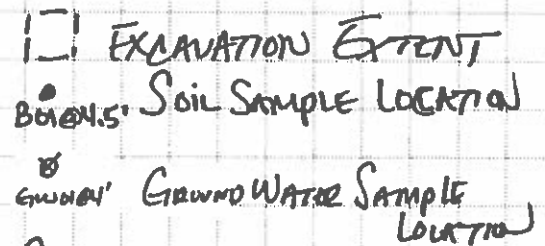 EXCAVATION EXTENT
B01@4.5' SOIL SAMPLE LOCATION
GW01@4' GROUND WATER SAMPLE
LOCATION